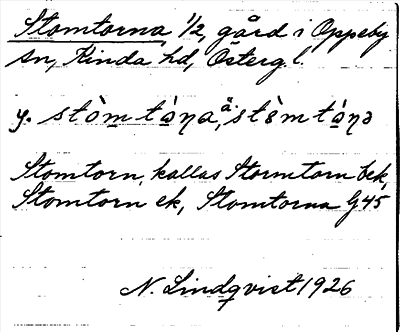 Stomtorna, 1/2, gård i Oppeby
sn, Kinda hd, Österg. l.
y. stòmtáŋa, ä. stèmtáŋə
Stomtorn, kallas Stormtorn bek,
Stomtorn ek, Stomtorna G45
N. Lindqvist 1926